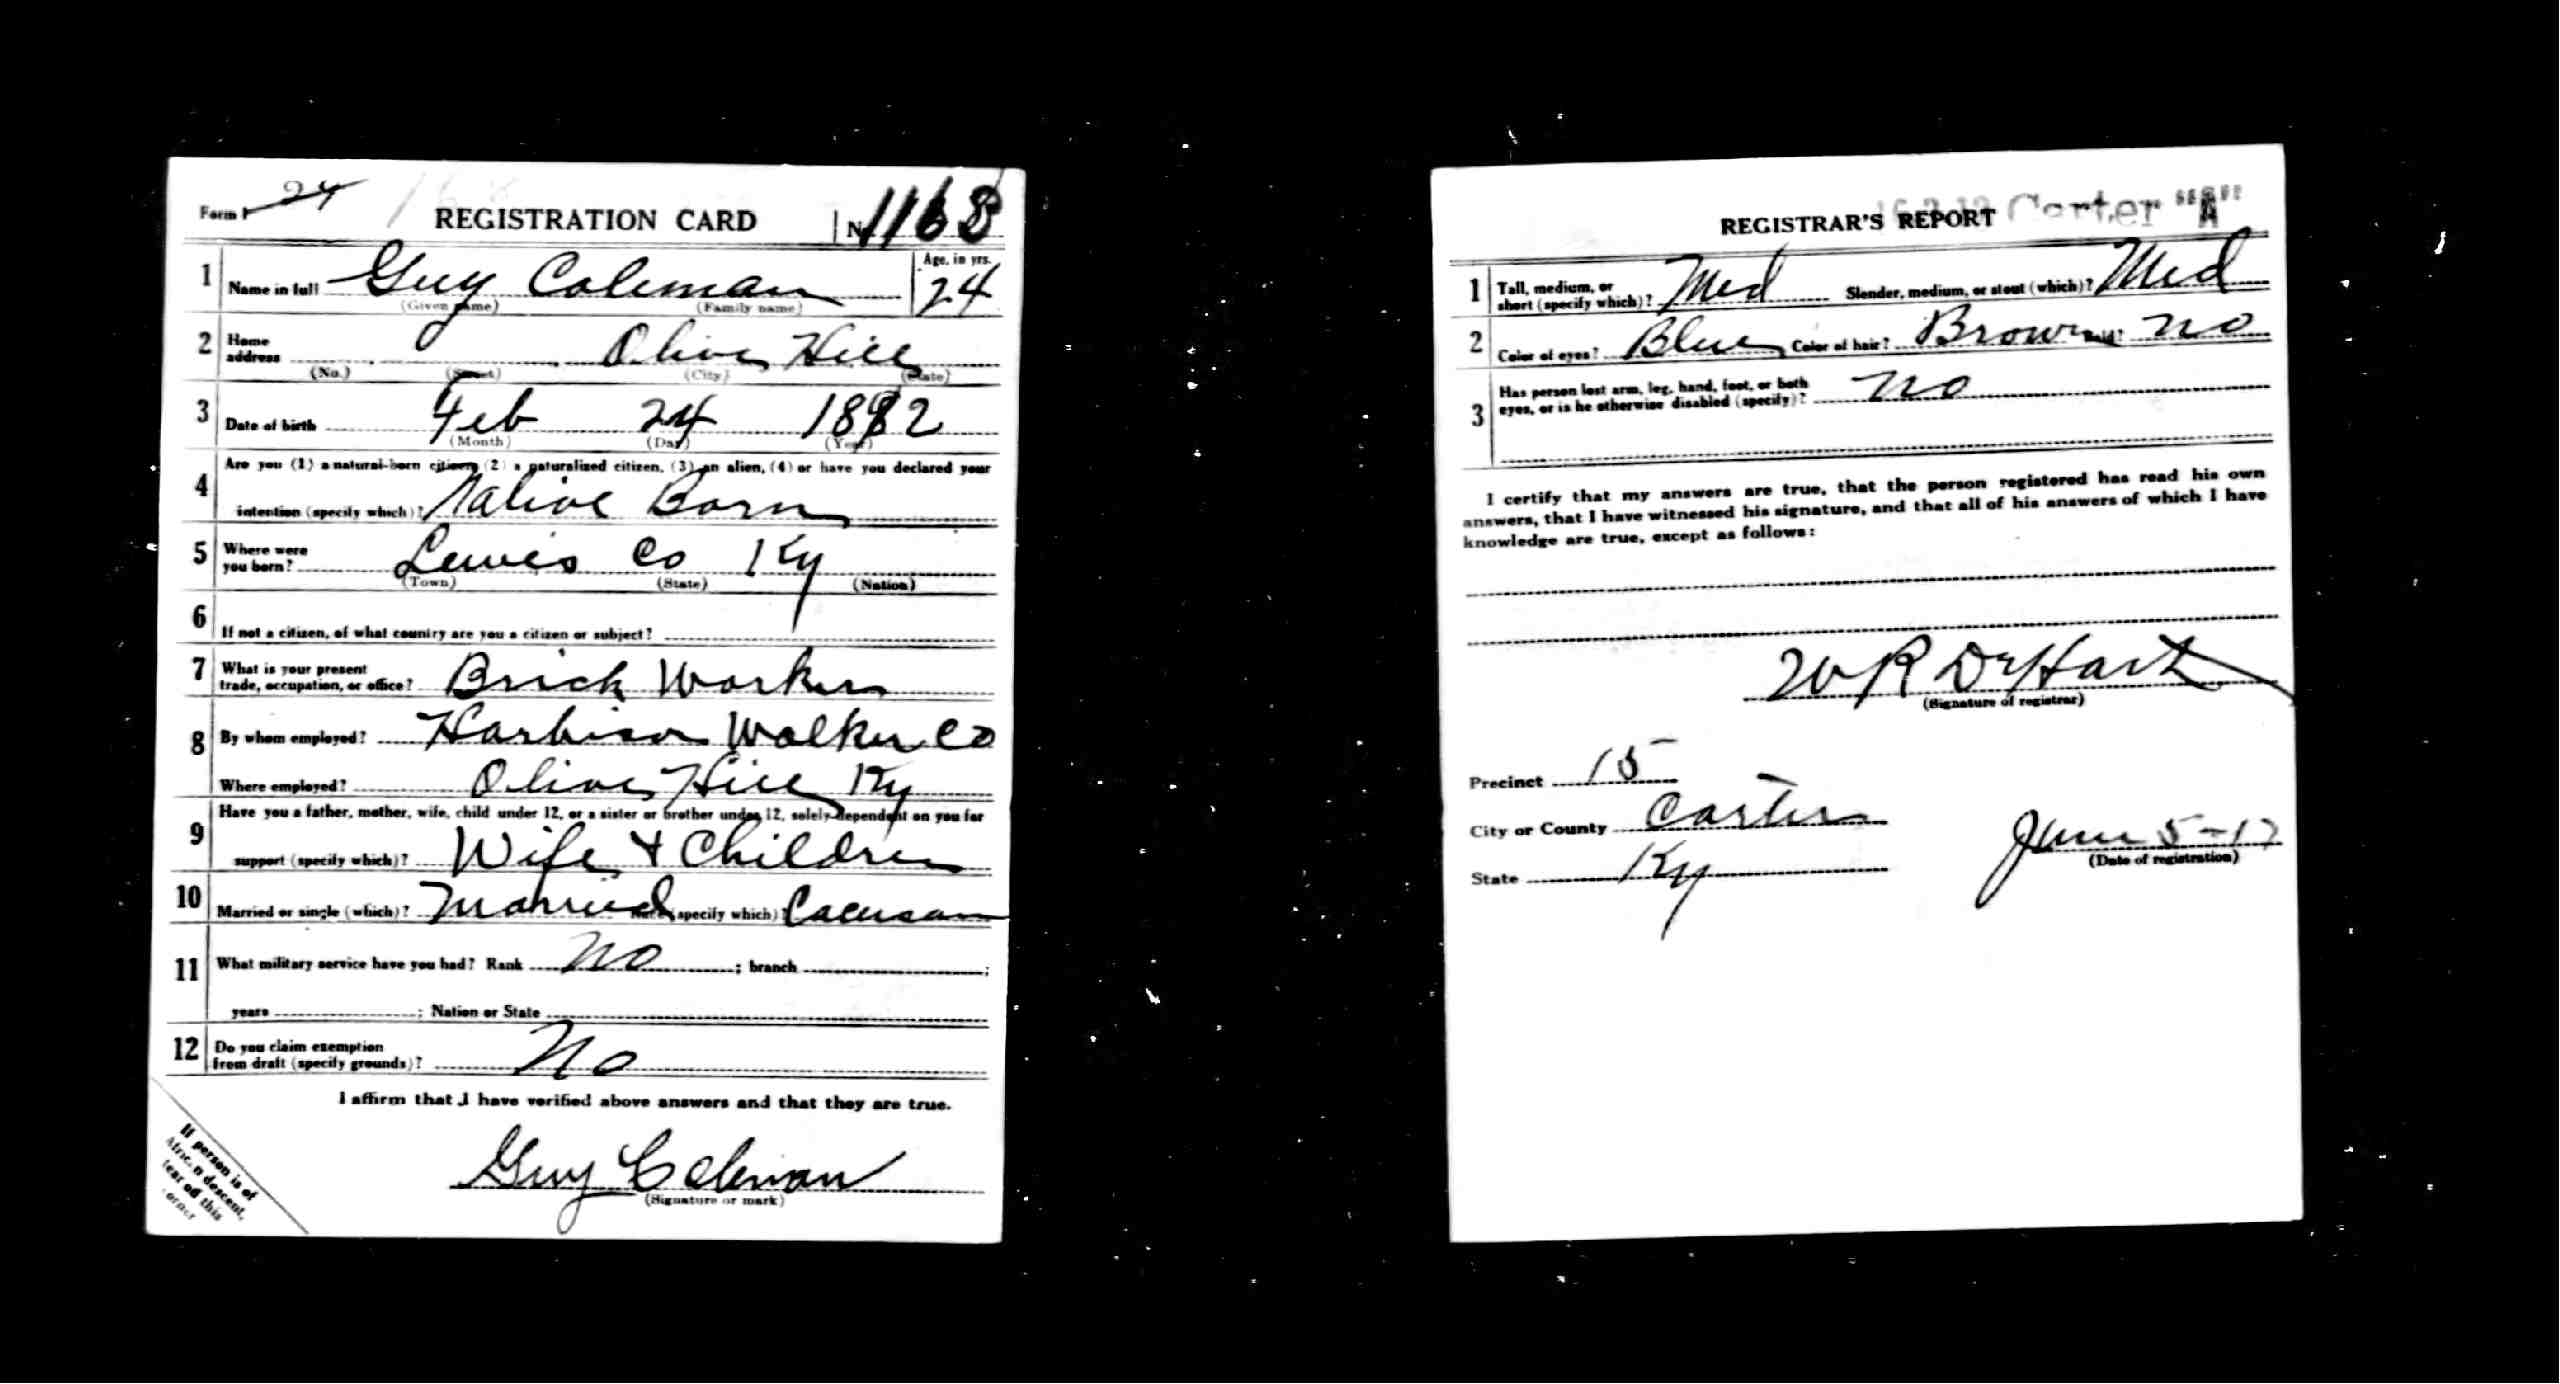 Form 1 24 REGISTRATION CARD No 1168
1 Name in full Guy Coleman Age, in yrs. 24
(Given name) (Family name)
2 Home address Olive Hill
(No.) (Street) (City) (State)
3 Date of birth Feb 24 1892
(Month) (Day) (Year)
4 Are you (1) a natural-born citizen, (2) a naturalized citizen, (3) an alien, (4) or have you declared your
intention (specify which)? Native Born
5 Where were you born? Lewis Co Ky
(Town) (State) (Nation)
6 If not a citizen, of what country are you a citizen or subject?
7 What is your present trade, occupation, or office? Brick Worker
8 By whom employed? Harbison Walker Co
Where employed? Olive Hill Ky
9 Have you a father, mother, wife, child under 12, or a sister or brother under 12, solely dependent on you for
support (specify which)? Wife + Children
10 Married or single (which)? Married Race (specify which)? Caucasan
11 What military service have you had? Rank No ; branch ;
years ; Nation or State
12 Do you claim exemption from draft (specify grounds)? No
I affirm that I have verified above answers and that they are true.
Guy Coleman
(Signature or mark)
If person is of
African descent,
tear off this
corner
REGISTRAR'S REPORT Carter "A"
1 Tall, medium, or short (specify which)? Med Slender, medium, or stout (which)? Med
2 Color of eyes? Blue Color of hair? Brown Bald? No
3 Has person lost arm, leg, hand, foot, or both eyes, or is he otherwise disabled (specify)? No
I certify that my answers are true, that the person registered has read his own
answers, that I have witnessed his signature, and that all of his answers of which I have
knowledge are true, except as follows:
W R DeHart
(Signature of registrar)
Precinct 15
City or County Carter
State Ky
June 5-17
(Date of registration)